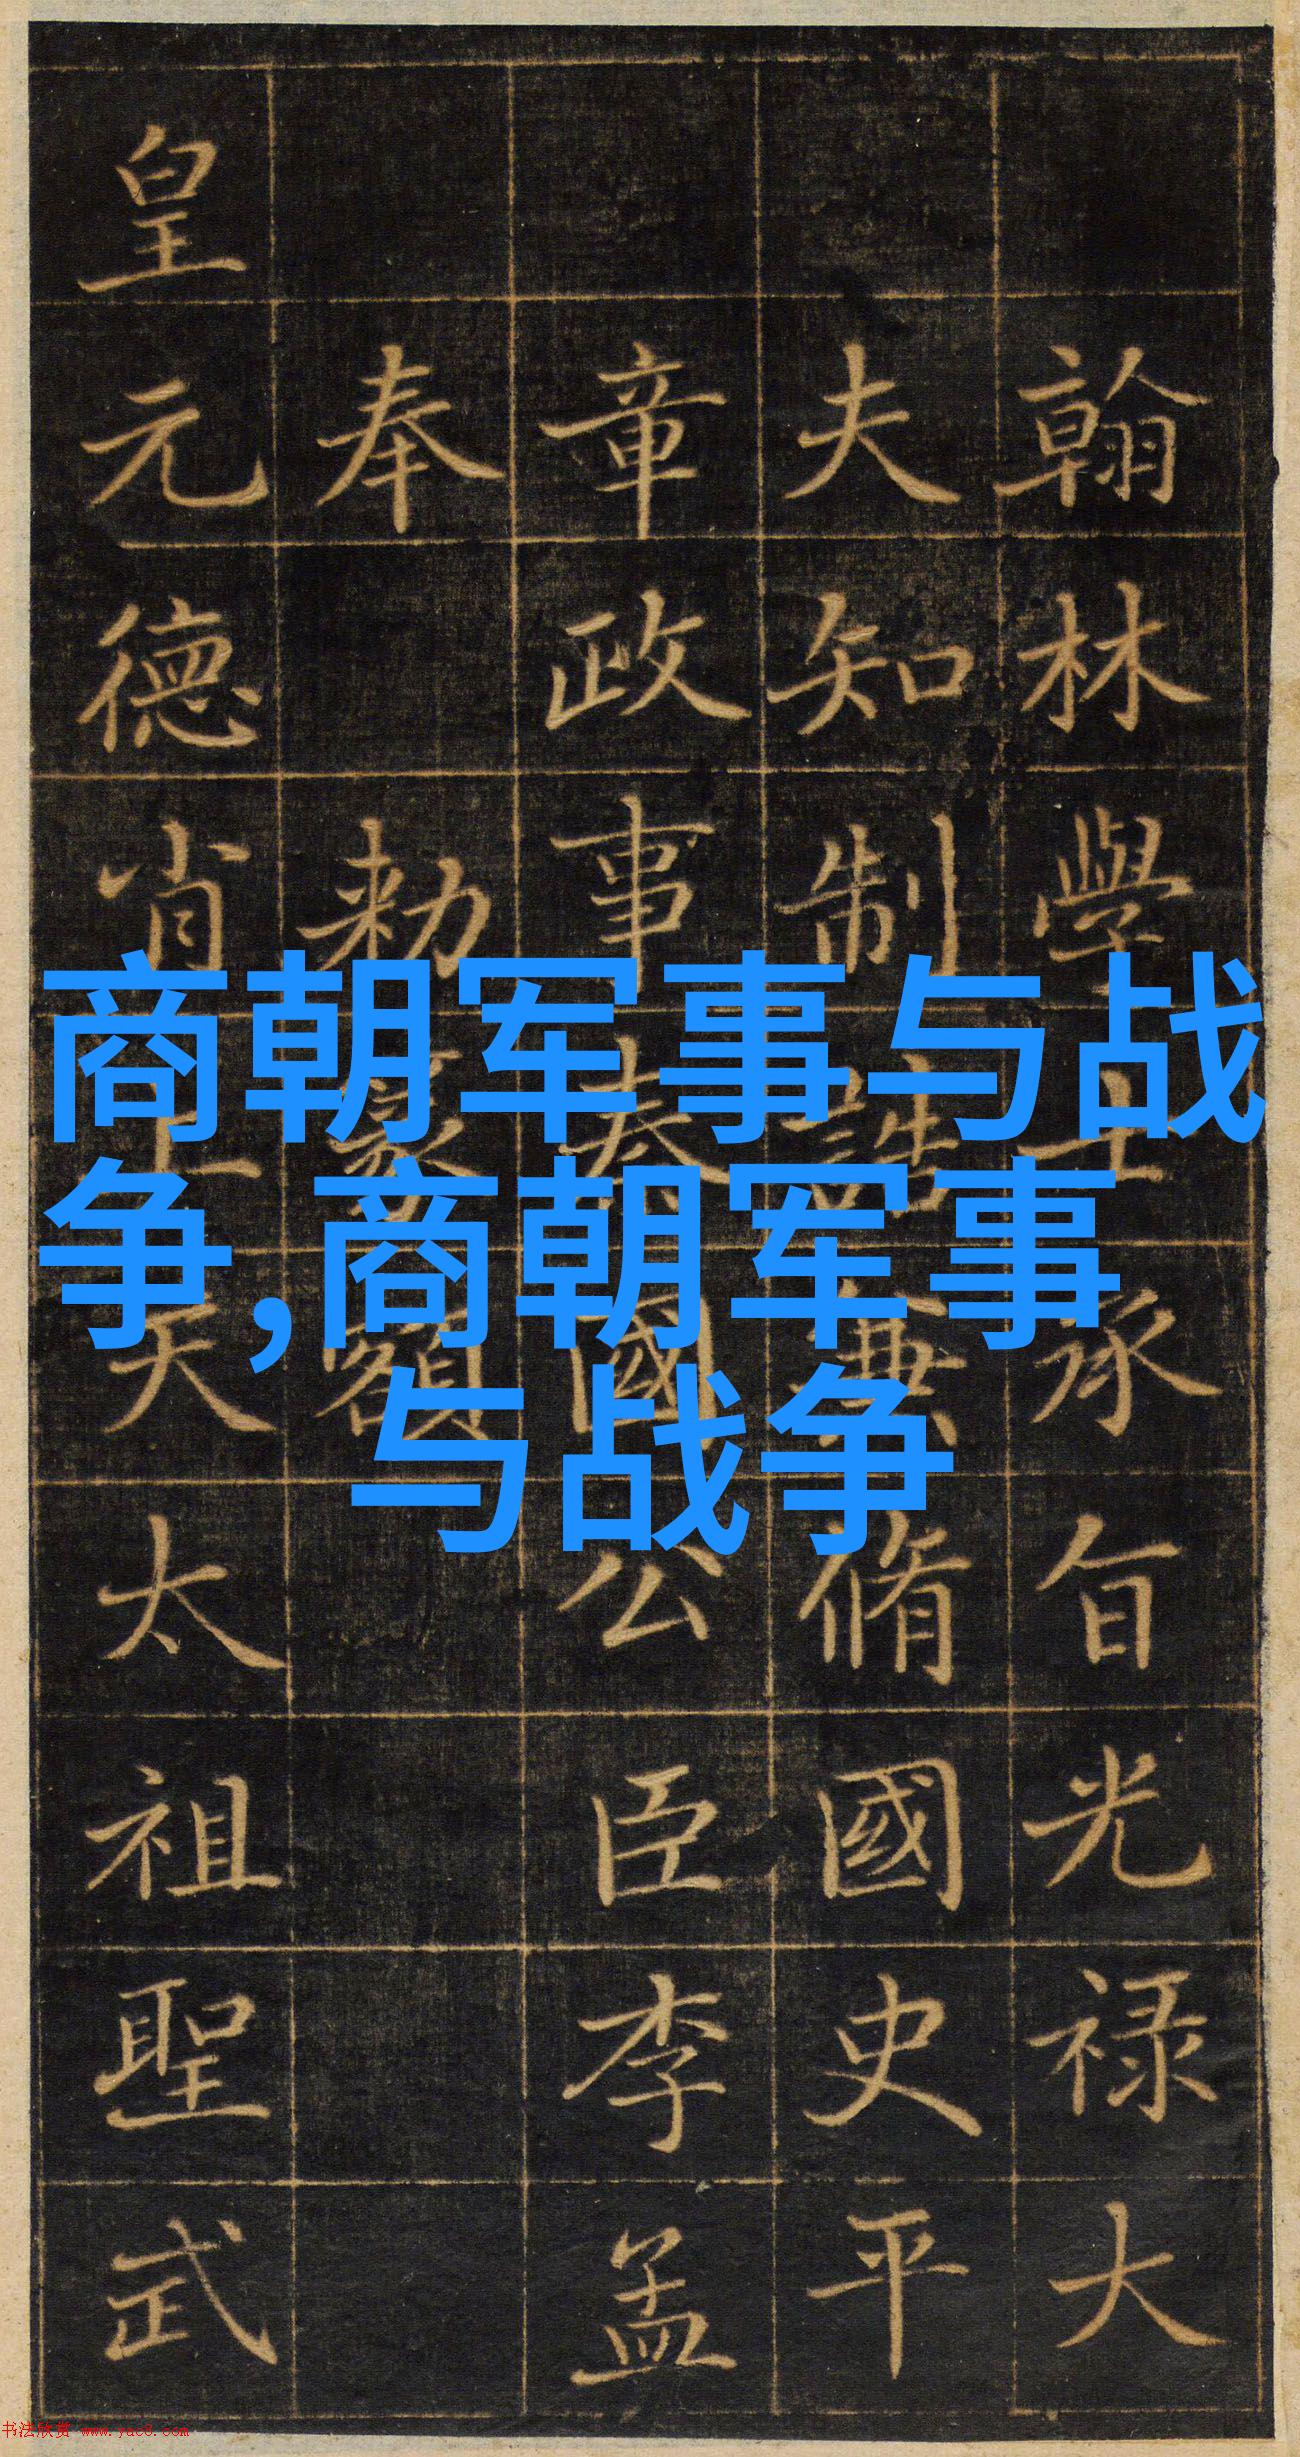 翰林學士承旨光禄大
夫知制誥兼脩國史平
章政事秦國公臣李孟
奉勑篆額
皇元德肖上天太祖聖武
商朝军事与战
争,商朝军事
与战争
书法欣赏 www.yac8.com